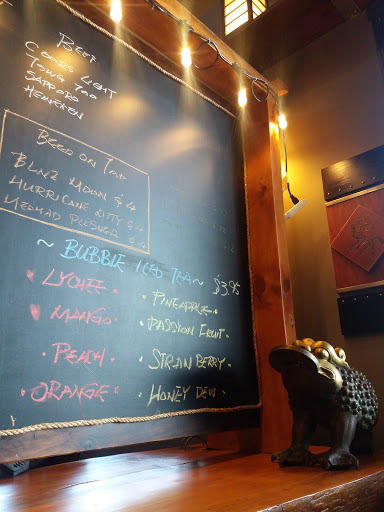 BEER
COORS LIGHT
TSING TAO
SAPPORO
HEINEKEN
BEER ON TAP
BLUE MOON $4
HURRICANE KITTY $4
MERMAID PILSNER $4
~ BUBBLE ICED TEA ~ $3.95
• LYCHEE •
• MANGO •
• PEACH •
• ORANGE •
• PINEAPPLE •
• PASSION FRUIT •
• STRAWBERRY
• HONEY DEW •